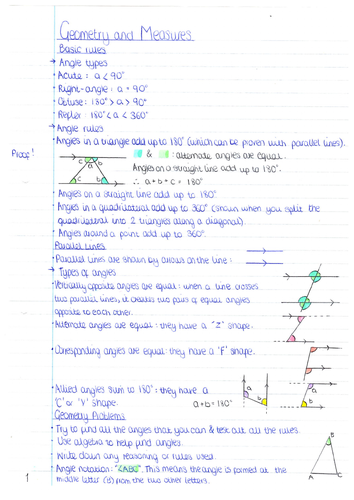 Geometry and Measures
Basic rules
→ Angle types
• Acute : a < 90°
• Right-angle : a = 90°
• Obtuse : 180° > a > 90°
• Reflex : 180° < a < 360°
→ Angle rules
• Angles in a triangle add up to 180° (which can be proven with parallel lines).
Proof!
& : alternate angles are equal.
Angles on a straight line add up to 180°.
∴ a + b + c = 180°
c a b
c b
• Angles on a straight line add up to 180°.
• Angles in a quadrilateral add up to 360° (shown when you split the
quadrilateral into 2 triangles along a diagonal).
• Angles around a point add up to 360°.
Parallel Lines
• Parallel lines are shown by arrows on the line :
→ Types of angles
• Vertically opposite angles are equal : when a line crosses
two parallel lines, it creates two pairs of equal angles
opposite to each other.
• Alternate angles are equal : they have a "Z" shape.
• Corresponding angles are equal : they have a 'F' shape.
• Allied angles sum to 180° : they have a
'C' or 'U' shape.
a + b = 180°
a b
a
b
Geometry Problems
• Try to find all the angles that you can & test out all the rules.
• Use algebra to help find angles.
• Write down any reasoning or rules used.
• Angle notation : "<ABC". This means the angle is formed at the
middle letter (B) from the two other letters.
B
A C
1